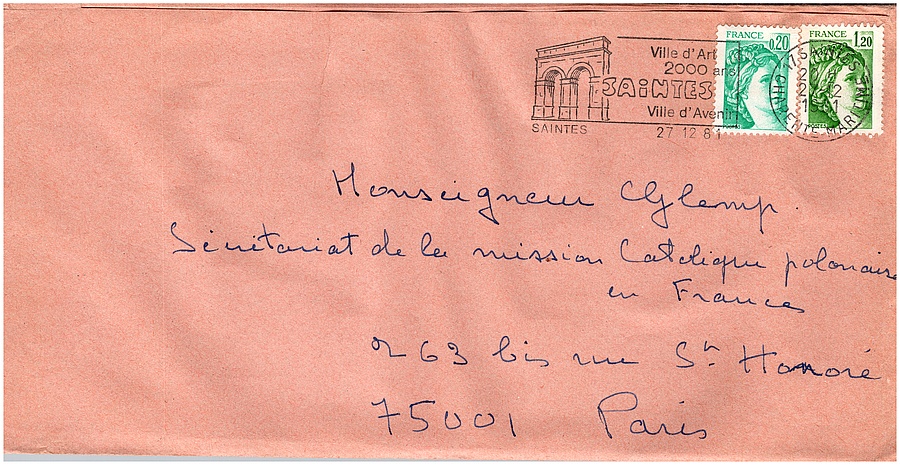 Ville d'Art
2000 ans
SAINTES
Ville d'Avenir
SAINTES
27 12 81
FRANCE 0,20
FRANCE 1,20
Monseigneur Glemp.
Sécrétariat de la mission Catolique polonaise
en France
263 bis rue St Honoré
75001 Paris